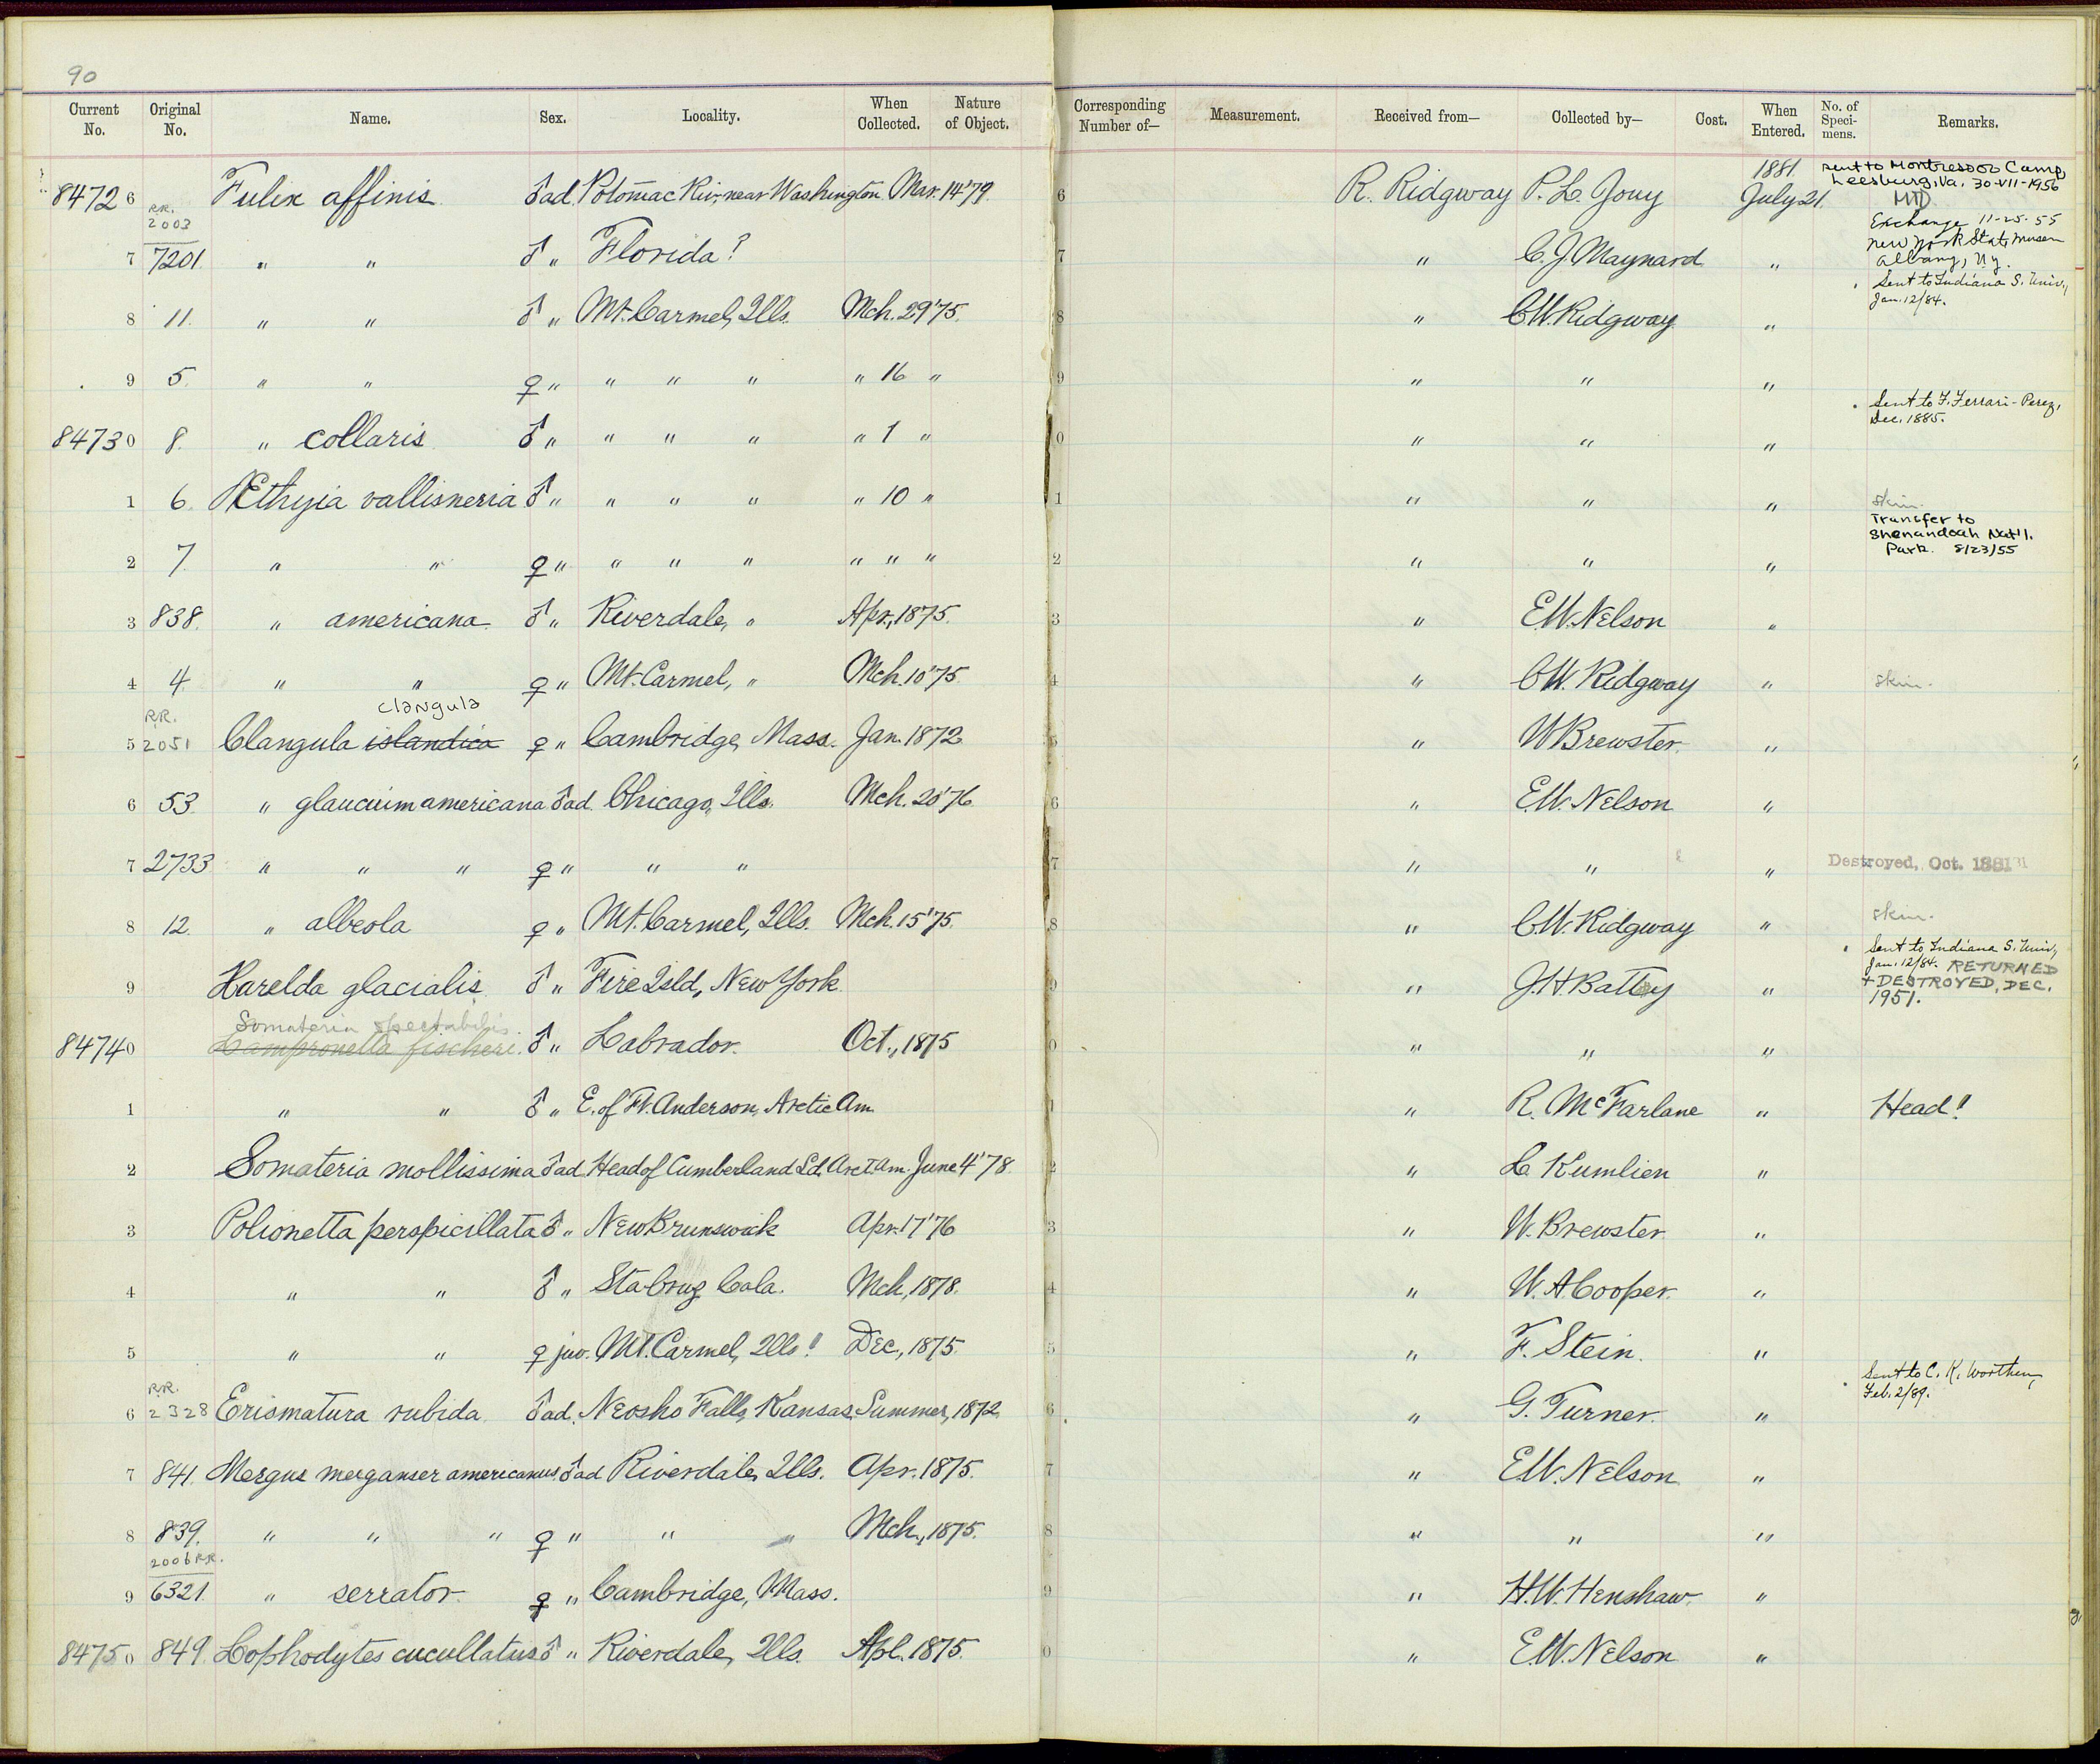 90
Current No. Original No. Name. Sex. Locality. When Collected. Nature of Object. Corresponding Number of— Measurement. Received from— Collected by— Cost. When Entered. No. of Specimens. Remarks.
84726 R.R. 2003 Fulix affinis ♂ ad. Potomac Riv., near Washington Mar. 14 '79. 6 R. Ridgway P. L. Jouy 1881. July 21. sent to Montressor Camp, Leesburg, Va. 30-VII-1956
7 7201. " " ♂ " Florida? 7 " C. J. Maynard " Exchange 11-25-55 New York State Museum Albany, N.Y.
8 11. " " ♂ " Mt. Carmel, Ills. Mch. 29 '75. 8 " C.W. Ridgway " Sent to Indiana S. Univ., Jan. 12/84.
9 5. " " ♀ " " " " " 16 " 9 " " "
84730 8. " collaris ♂ " " " " " 1 " 0 " " " Sent to F. Ferrari-Perez, Dec. 1885.
1 6. Æthyia vallisneria ♂ " " " " " 10 " 1 " " "
2 7. " " ♀ " " " " " " " 2 " " " skin. Transfer to Shenandoah Nat'l. Park. 8/23/55
3 838. " americana ♂ " Riverdale, " Apr., 1875. 3 " E.W. Nelson "
4 4. " " ♀ " Mt. Carmel, " Mch. 10 '75. 4 " C.W. Ridgway " skin.
clangula
5 R.R. 2051 Clangula islandica ♀ " Cambridge, Mass. Jan. 1872 5 " W Brewster. "
6 53 " glaucium americana ♂ ad. Chicago, Ills. Mch. 20 '76 6 " E.W. Nelson "
7 2733 " " " ♀ " " " 7 " " " Destroyed, Oct. 1881
8 12. " albeola ♀ " Mt. Carmel, Ills. Mch. 15 '75. 8 " C.W. Ridgway " skin.
9 Harelda glacialis ♂ " Fire Isld, New York. 9 " J.H. Battey " Sent to Indiana S. Univ., Jan. 12/84. RETURNED + DESTROYED, DEC. 1951.
Somateria spectabilis.
84740 Lampronetta fischeri. ♂ " Labrador. Oct., 1875 0 " " "
1 " " ♂ " E. of Ft. Anderson, Arctic Am. 1 " R. McFarlane " Head!
2 Somateria mollissima ♂ ad Head of Cumberland Sd. Arct. Am. June 4 '78. 2 " L Kumlien "
3 Polionetta perspicillata ♂ " New Brunswick Apr. 17 '76 3 " W. Brewster "
4 " " ♂ " Sta Cruz Cala. Mch, 1878. 4 " W. A Cooper. "
5 " " ♀ juv. Mt. Carmel, Ills! Dec., 1875. 5 " F. Stein. "
6 R.R. 2328 Erismatura rubida ♂ ad. Neosho Falls, Kansas. Summer, 1872. 6 " G. Turner. " Sent to C. K. Worthen, Feb. 2/89.
7 841. Mergus merganser americanus ♂ ad Riverdale, Ills. Apr. 1875. 7 " E.W. Nelson "
8 839. " " " ♀ " " " Mch., 1875. 8 " " "
9 2006 R.R. 6321 " serrator ♀ " Cambridge, Mass. 9 " H.W. Henshaw. "
84750 849. Lophodytes cucullatus ♂ " Riverdale, Ills. Apl. 1875. 0 " E.W. Nelson "